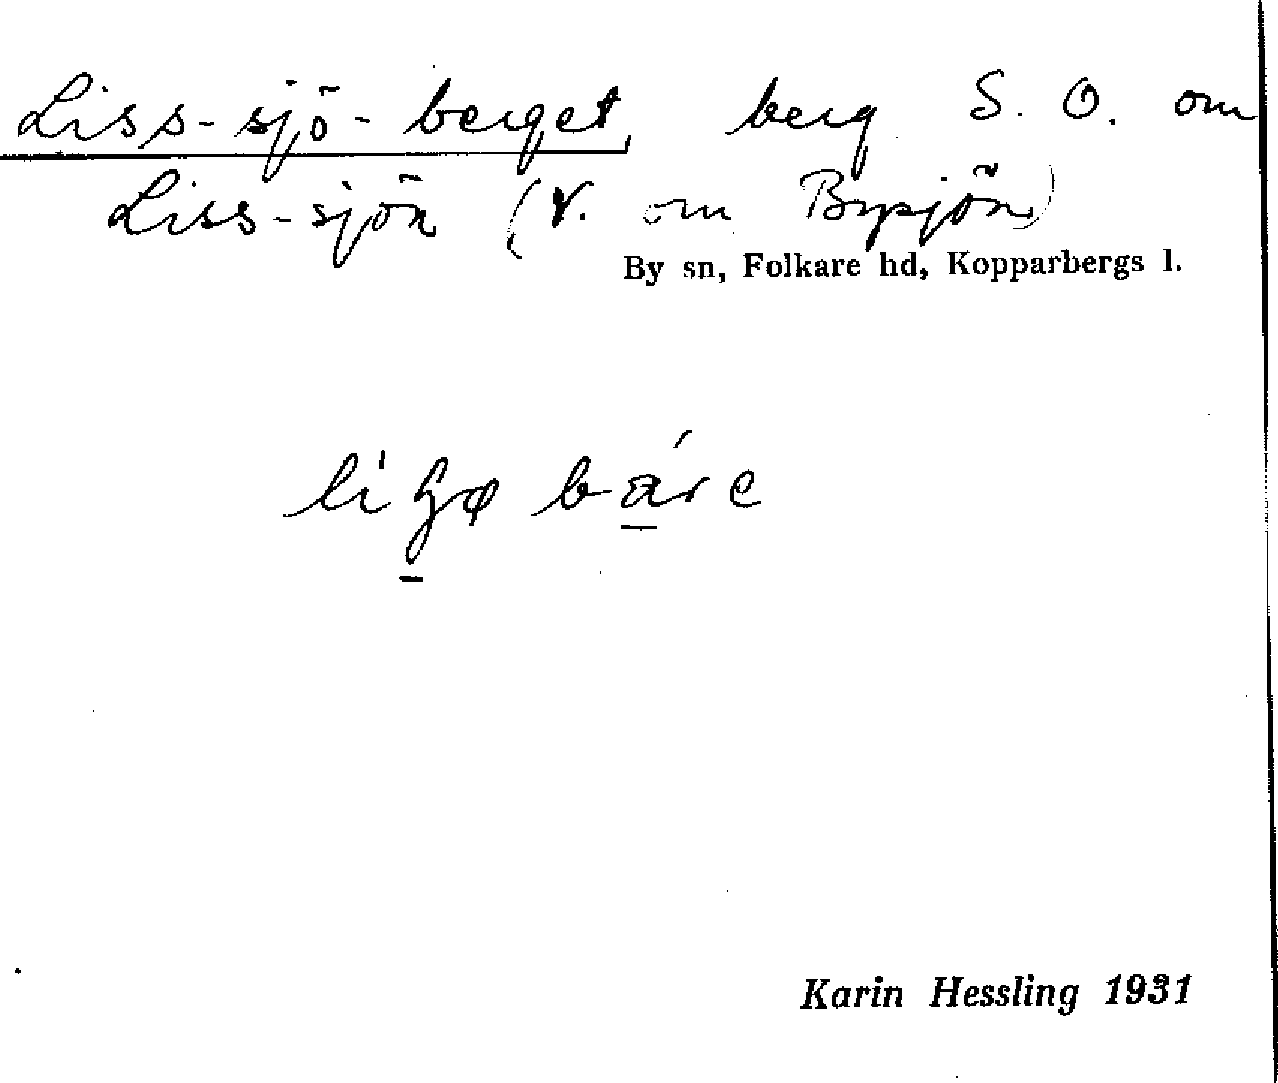 Liss-sjö-berget, berg S. O. om
Liss-sjön (V. om Bysjön)
By sn, Folkare hd, Kopparbergs l.
Karin Hessling 1931